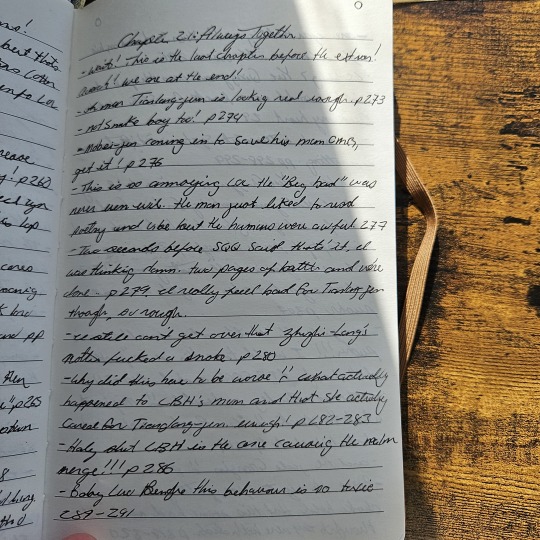 ns!
but thats
Chapter 26: Always Together
- wait! This is the last chapter before the extras!
we are at the end!
- oh man Tianlang-jun is looking real rough p273
- not snake boy too! p274
- Mobei-jun coming in to save his man OMG,
get it! p276
- This is so annoying the "Big bad" was
never even the man just liked to read
poetry and vibe but the humans were awful 277
- Two seconds before SQQ said that's it, I
was thinking damn. two pages of battle and we're
done - p279, I really feel bad for Tianlang-jun
though, so rough.
- I still can't get over that Zhuzhi-Lang's
mother fucked a snake. p280
- why did this have to be worse!! what actually
happened to LBH's mum and that she actually
cared for Tianglang-jun. p282-283
- Holy shit LBH is the one causing the realm
merge!!! p286
- Baby Luo this behaviour is so toxic
289-291
p260
cares
and pp
p265
8